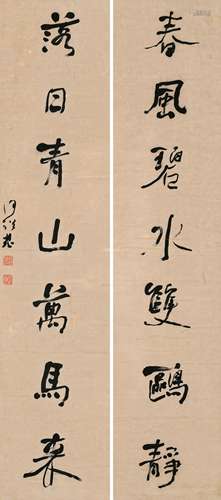 春風碧水雙鷗靜
落日青山萬馬來
何紹基